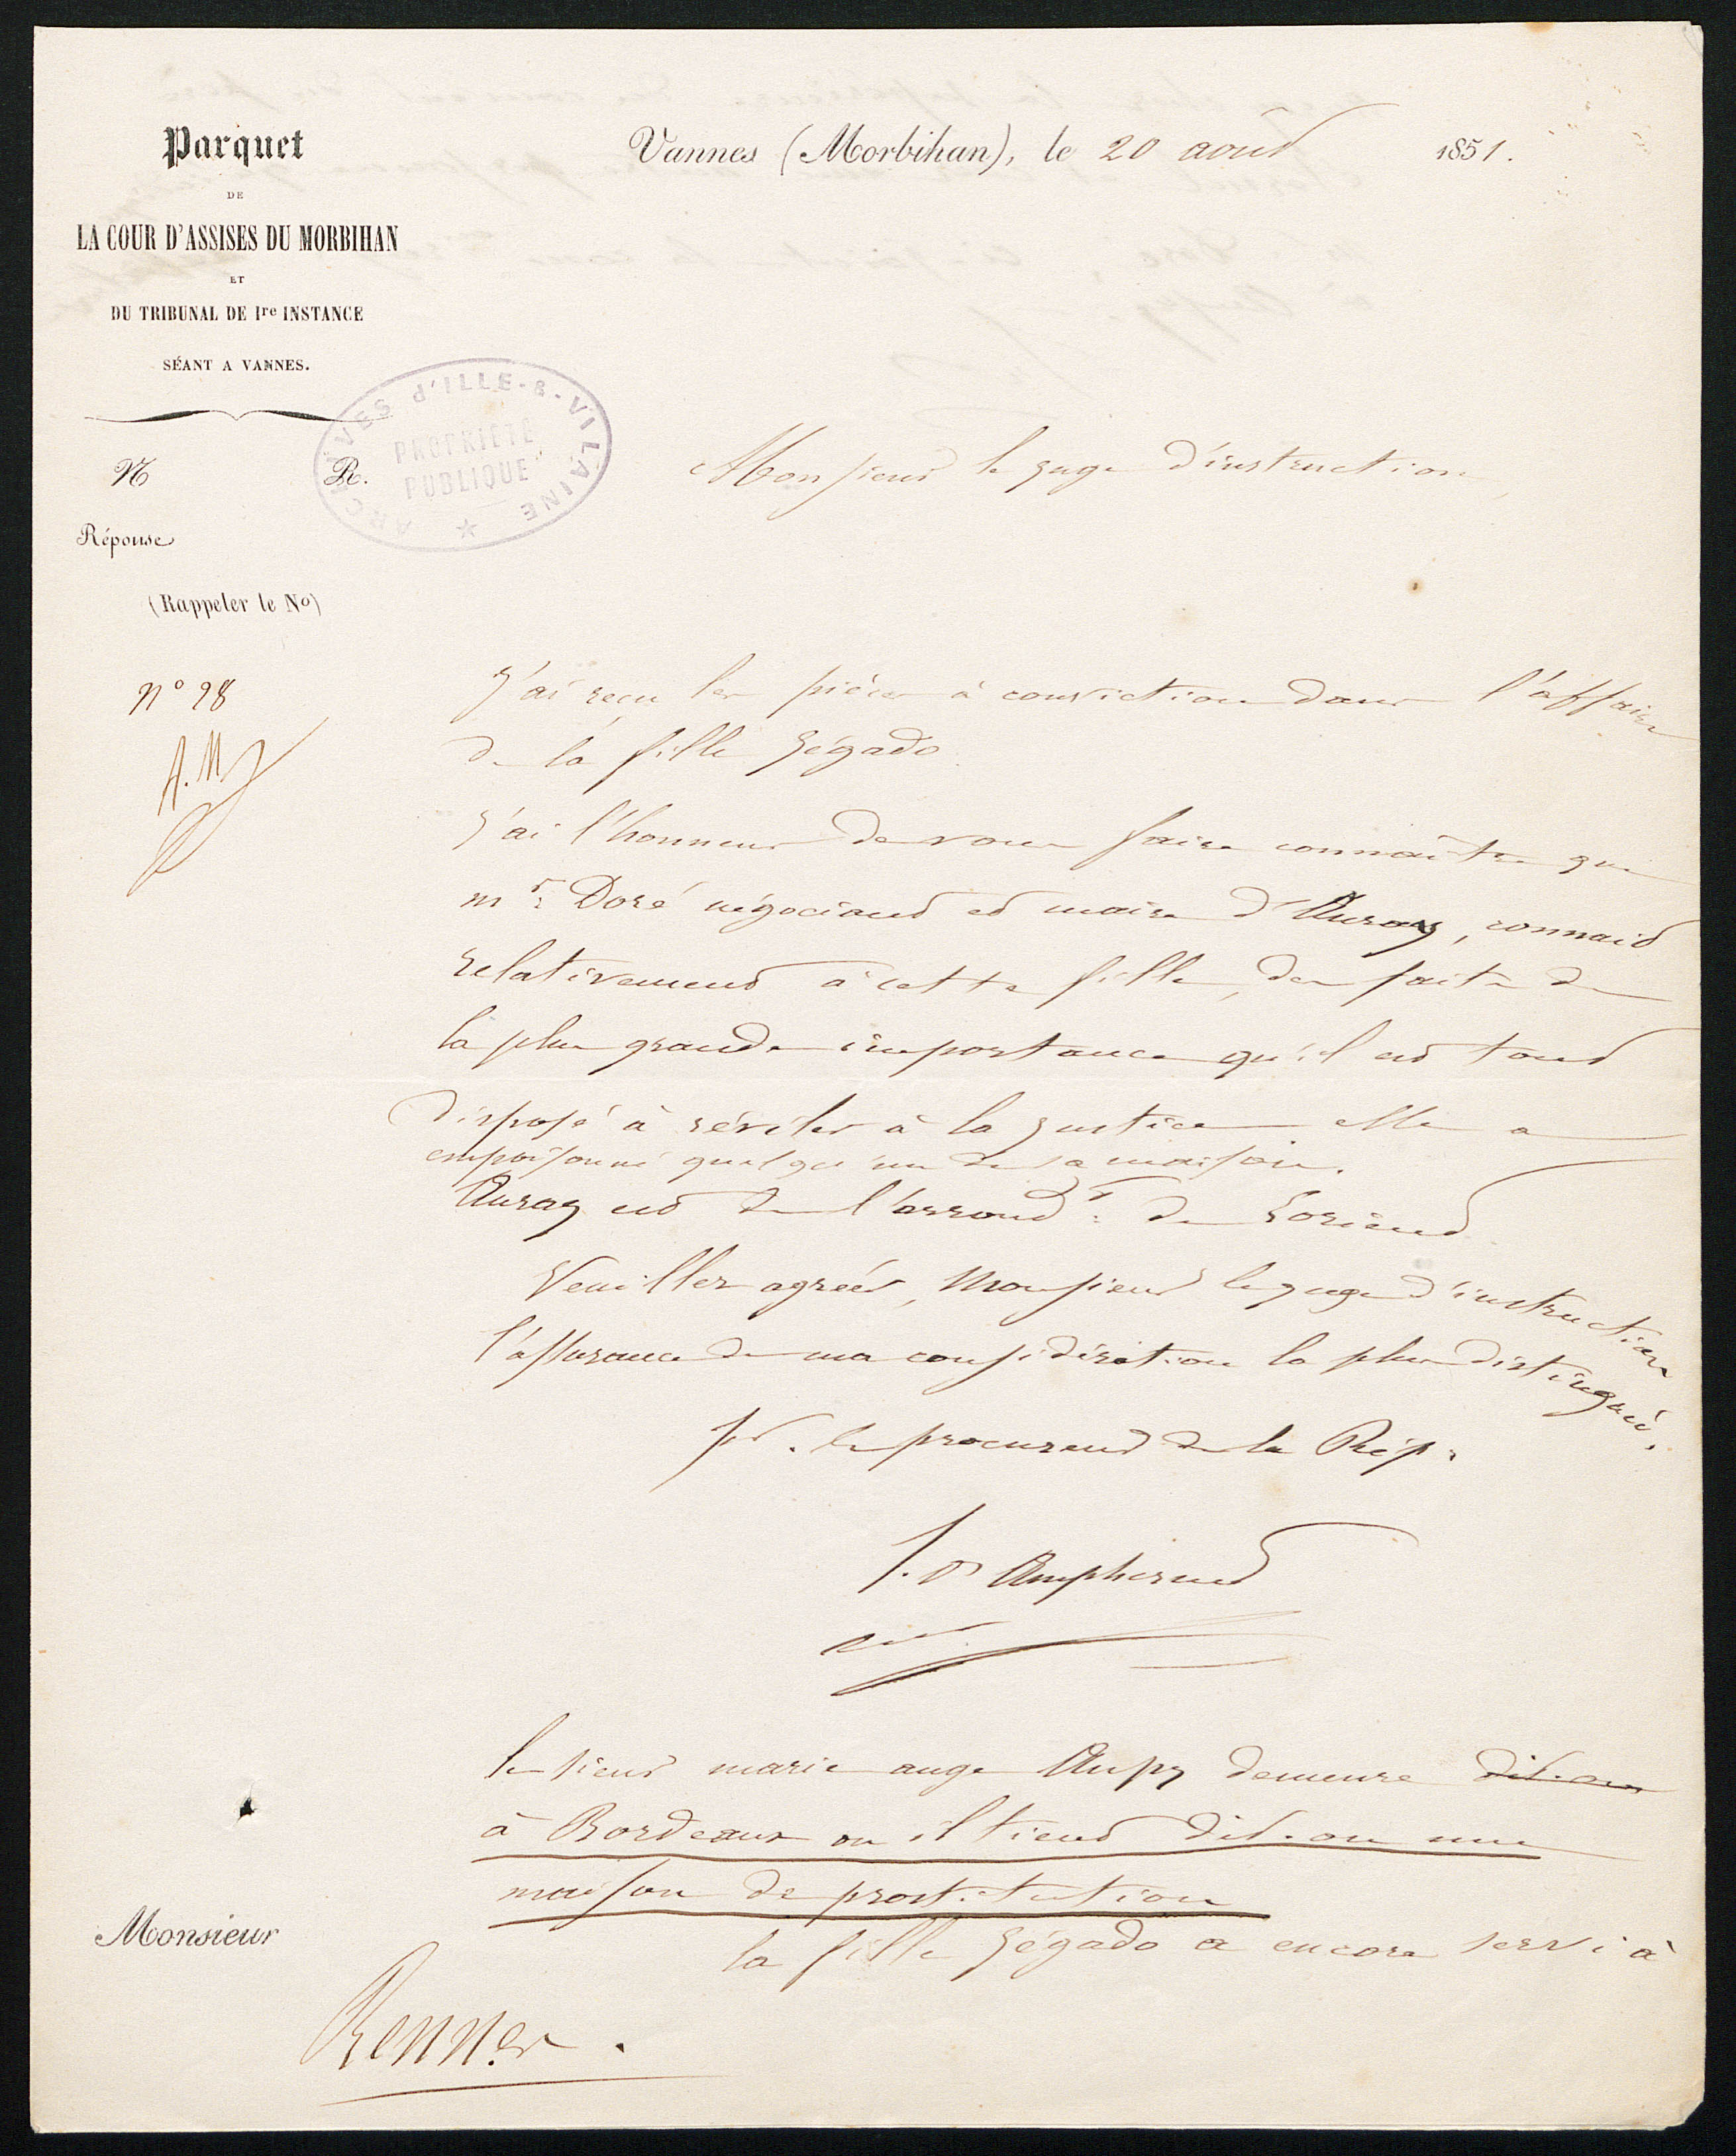 Parquet
DE
LA COUR D'ASSISES DU MORBIHAN
ET
DU TRIBUNAL DE Ire INSTANCE
SÉANT A VANNES.
N R.
Réponse
(Rappeler le No)
ARCHIVES d'ILLE-&-VILAINE
PROPRIÉTÉ
PUBLIQUE
n° 98
A.M
Vannes (Morbihan), le 20 août 1851.
Monsieur le juge d'instruction,
J'ai reçu les pièces à conviction dans l'affaire
de la fille Jégado.
J'ai l'honneur de vous faire connaître que
mr. Doré négociant et maire d'Auray, connait
relativement à cette fille, des faits de
la plus grande importance qu'il est tout
disposé à révéler à la justice elle a
empoisonné quelqu'un de sa maison.
Auray est de l'arrondt. de Lorient.
Veuillez agréer, Monsieur le juge d'instruction
l'assurance de ma considération la plus distinguée.
pr. le procureur de la Rép.
le sieur marie ange Aupy demeure dit-on
à Bordeaux ou il tient dit-on une
maison de prostitution
la fille Jégado a encore servi à
Monsieur
Rennes.